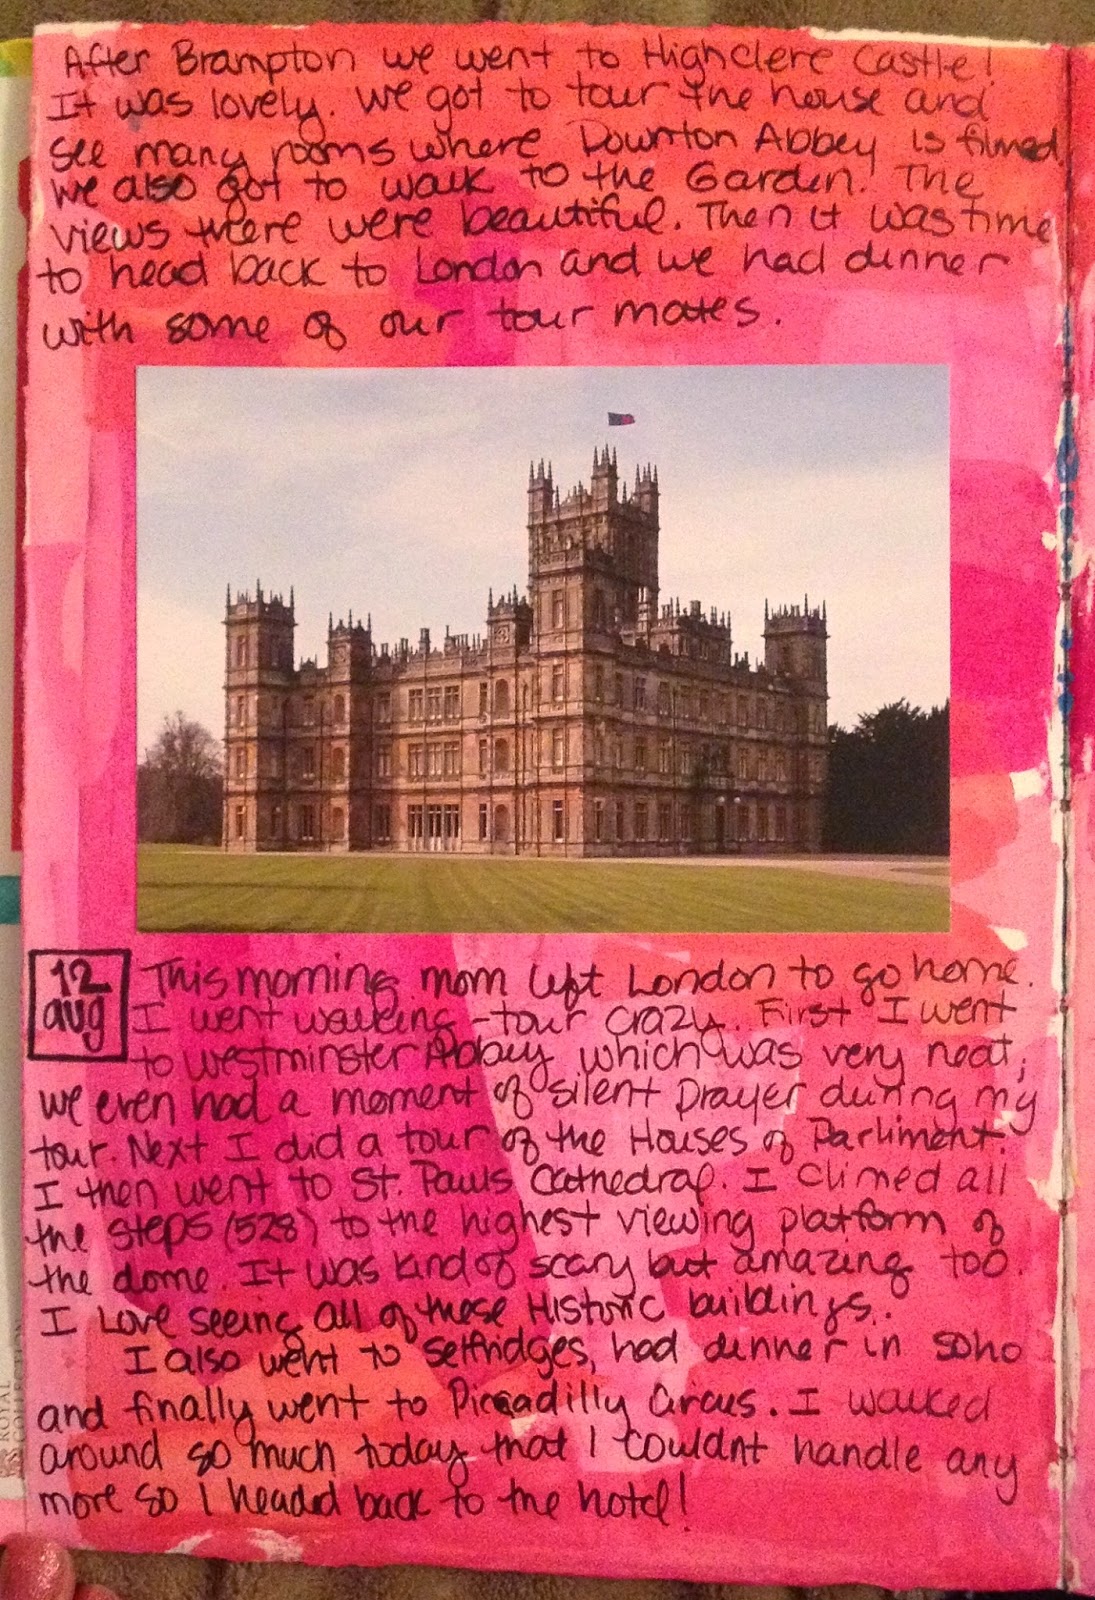 After Brampton we went to Highclere Castle!
It was lovely. We got to tour the house and
see many rooms where Downton Abbey is filmed
We also got to walk to the Garden. The
views there were beautiful. Then it was time
to head back to London and we had dinner
with some of our tour mates.
12
aug
This morning mom left London to go home.
I went walking-tour crazy. First I went
to Westminster Abbey which was very neat,
we even had a moment of silent prayer during my
tour. Next I did a tour of the Houses of Parliment.
I then went to St. Pauls Cathedral. I climed all
the steps (528) to the highest viewing platform of
the dome. It was kind of scary but amazing too.
I Love seeing all of these Historic buildings.
I also went to selfridges, had dinner in soho
and finally went to Piccadilly Circus. I walked
around so much today that I couldnt handle any
more so I headed back to the hotel!
ROYAL
COLLECTION